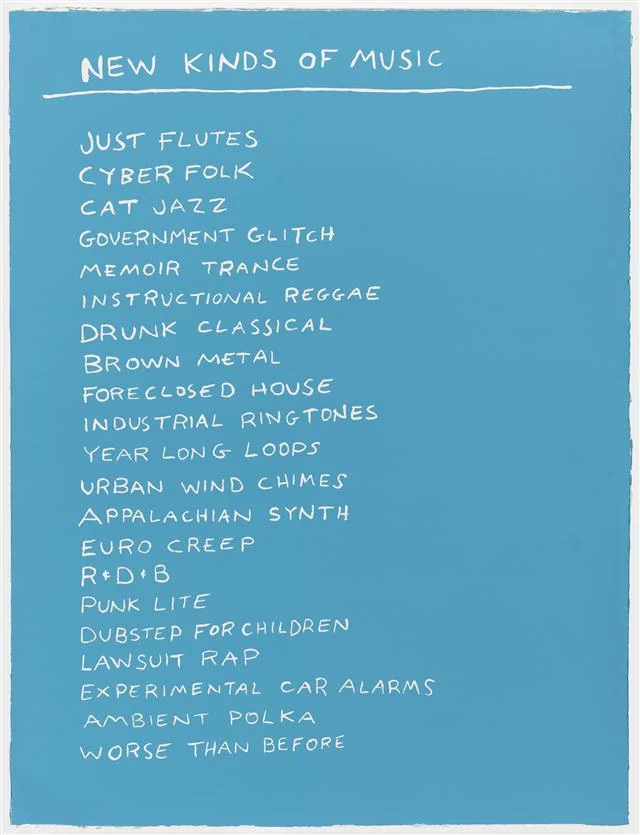 NEW KINDS OF MUSIC
JUST FLUTES
CYBER FOLK
CAT JAZZ
GOVERNMENT GLITCH
MEMOIR TRANCE
INSTRUCTIONAL REGGAE
DRUNK CLASSICAL
BROWN METAL
FORECLOSED HOUSE
INDUSTRIAL RINGTONES
YEAR LONG LOOPS
URBAN WIND CHIMES
APPALACHIAN SYNTH
EURO CREEP
R&D&B
PUNK LITE
DUBSTEP FOR CHILDREN
LAWSUIT RAP
EXPERIMENTAL CAR ALARMS
AMBIENT POLKA
WORSE THAN BEFORE